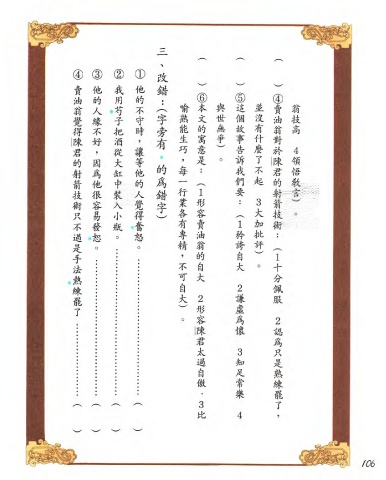 翁技高　4領悟教言）。
（　）④賣油翁對於陳君的射箭技術：（1十分佩服　2認為只是熟練罷了，
並沒有什麼了不起　3大加批評）。
（　）⑤這個故事告訴我們要：（1矜誇自大　2謙虛為懷　3知足常樂　4
與世無爭）。
（　）⑥本文的寓意是：（1形容賣油翁的自大　2形容陳君太過自傲．3比
喻熟能生巧，每一行業各有專精，不可自大）。
三、改錯：（字旁有•的為錯字）
①他的不守時，讓等他的人覺得奮怒。………………（　）
②我用芍子把酒從大缸中裝入小瓶。………………（　）
③他的人緣不好，因為他很容易發怒。………………（　）
④賣油翁覺得陳君的射箭技術只不過是手法熟練罷了…………（　）
106